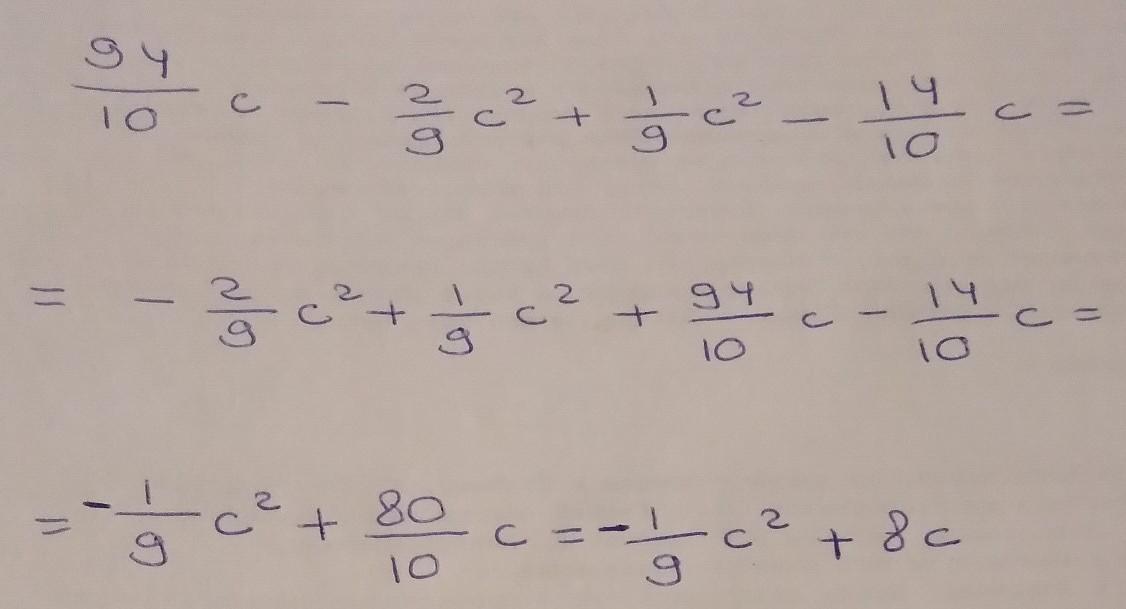 94/10 c - 2/9 c² + 1/9 c² - 14/10 c =
= - 2/9 c² + 1/9 c² + 94/10 c - 14/10 c =
= - 1/9 c² + 80/10 c = - 1/9 c² + 8c